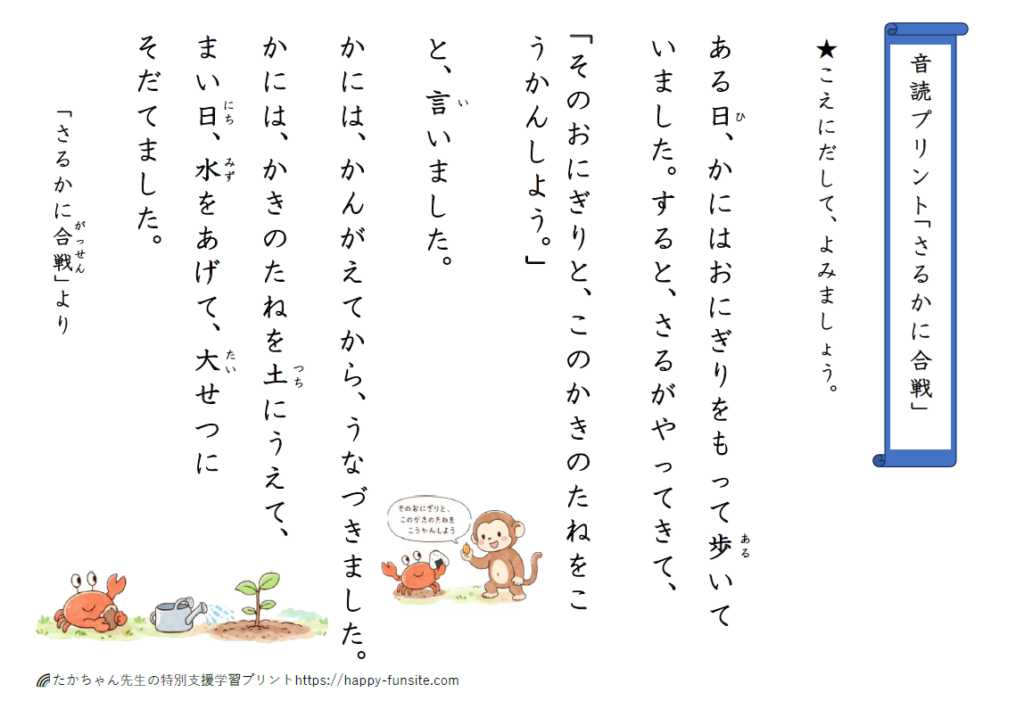 音読プリント「さるかに合戦」
★こえにだして、よみましょう。
ある日、かにはおにぎりをもって歩いて
ひ
ある
いました。すると、さるがやってきて、
「そのおにぎりと、このかきのたねをこ
うかんしよう。」
と、言いました。
い
かには、かんがえてから、うなづきました。
かには、かきのたねを土にうえて、
つち
まい日、水をあげて、大せつに
にち
みず
たい
そだてました。
「さるかに合戦」より
がっせん
そのおにぎりと、
このがきのたねを
こうかんしよう
たかちゃん先生の特別支援学習プリントhttps://happy-funsite.com